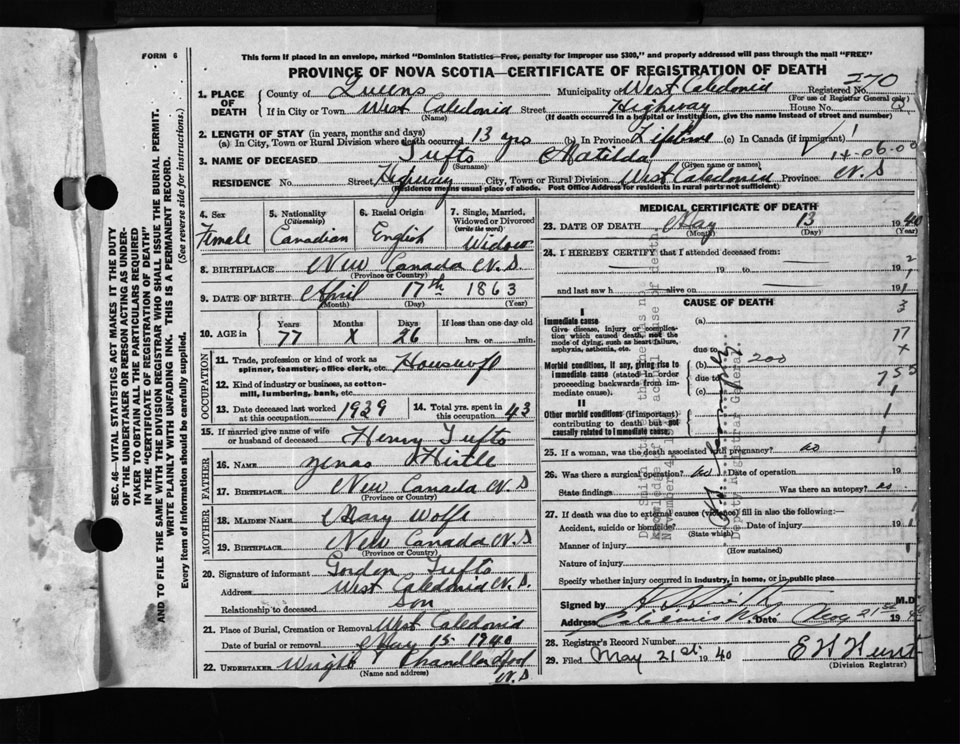 FORM 6
This form if placed in an envelope, marked "Dominion Statistics—Free, penalty for improper use $300," and properly addressed will pass through the mail "FREE"
PROVINCE OF NOVA SCOTIA—CERTIFICATE OF REGISTRATION OF DEATH
270
1. PLACE OF DEATH County of Queens Municipality of West Caledonia Registered No.
(For use of Registrar General only)
If in City or Town West Caledonia Street Highway House No.
(Name) (If death occurred in a hospital or institution, give the name instead of street and number)
2. LENGTH OF STAY (in years, months and days)
(a) In City, Town or Rural Division where death occurred 13 yrs (b) In Province Lifetime (c) In Canada (if immigrant)
3. NAME OF DECEASED Tufts Matilda 14-06-00
(Surname) (Given name or names)
RESIDENCE No. Street Highway City, Town or Rural Division West Caledonia Province N.S
(Residence means usual place of abode. Post Office Address for residents in rural parts not sufficient)
4. Sex Female
5. Nationality (Citizenship) Canadian
6. Racial Origin English
7. Single, Married, Widowed or Divorced (write the word) Widow
8. BIRTHPLACE New Canada N.S
(Province or Country)
9. DATE OF BIRTH April 17th 1863
(Month) (Day) (Year)
10. AGE in Years 77 Months X Days 26 If less than one day old hrs. or min.
OCCUPATION
11. Trade, profession or kind of work as spinner, teamster, office clerk, etc. Housewife
12. Kind of industry or business, as cotton-mill, lumbering, bank, etc.
13. Date deceased last worked at this occupation 1939 14. Total yrs. spent in this occupation 43
15. If married give name of wife or husband of deceased Henry Tufts
FATHER
16. NAME Zenas
17. BIRTHPLACE New Canada N.S
(Province or Country)
MOTHER
18. MAIDEN NAME Mary Wolfe
19. BIRTHPLACE New Canada N.S
(Province or Country)
20. Signature of informant Gorden Tufts
Address West Caledonia N.S.
Relationship to deceased Son
21. Place of Burial, Cremation or Removal West Caledonia
Date of burial or removal May 15 1940
22. UNDERTAKER Wright N.S
(Name and address)
MEDICAL CERTIFICATE OF DEATH
23. DATE OF DEATH May 13 1940
(Month) (Day) (Year)
24. I HEREBY CERTIFY that I attended deceased from:
19 to 19
and last saw h alive on 19
CAUSE OF DEATH
I
Immediate cause (a)
Give disease, injury or complication which caused death, not the mode of dying, such as heart failure, asphyxia, asthenia, etc.
due to
Morbid conditions, if any, giving rise to immediate cause (stated in order proceeding backwards from immediate cause). (b) 200
due to
(c)
II
Other morbid conditions (if important) contributing to death but not causally related to immediate cause.
3
77
X
25. If a woman, was the death associated with pregnancy? no
26. Was there a surgical operation? no Date of operation 19
State findings Was there an autopsy? no
27. If death was due to external causes (violence) fill in also the following:—
Accident, suicide or homicide? Date of injury 19
(State which)
Manner of injury
(How sustained)
Nature of injury
Specify whether injury occurred in industry, in home, or in public place
Signed by M.D.
Address Date May 21st 19
28. Registrar's Record Number
29. Filed May 21st 1940 E H Hunt
(Division Registrar)
Deputy Registrar General.
SEC. 46—VITAL STATISTICS ACT MAKES IT THE DUTY
OF THE UNDERTAKER OR PERSON ACTING AS UNDER-
TAKER TO OBTAIN ALL THE PARTICULARS REQUIRED
IN THE "CERTIFICATE OF REGISTRATION OF DEATH"
AND TO FILE THE SAME WITH THE DIVISION REGISTRAR WHO SHALL ISSUE THE BURIAL PERMIT.
WRITE PLAINLY WITH UNFADING INK. THIS IS A PERMANENT RECORD.
Every item of Information should be carefully supplied. (See reverse side for instructions.)